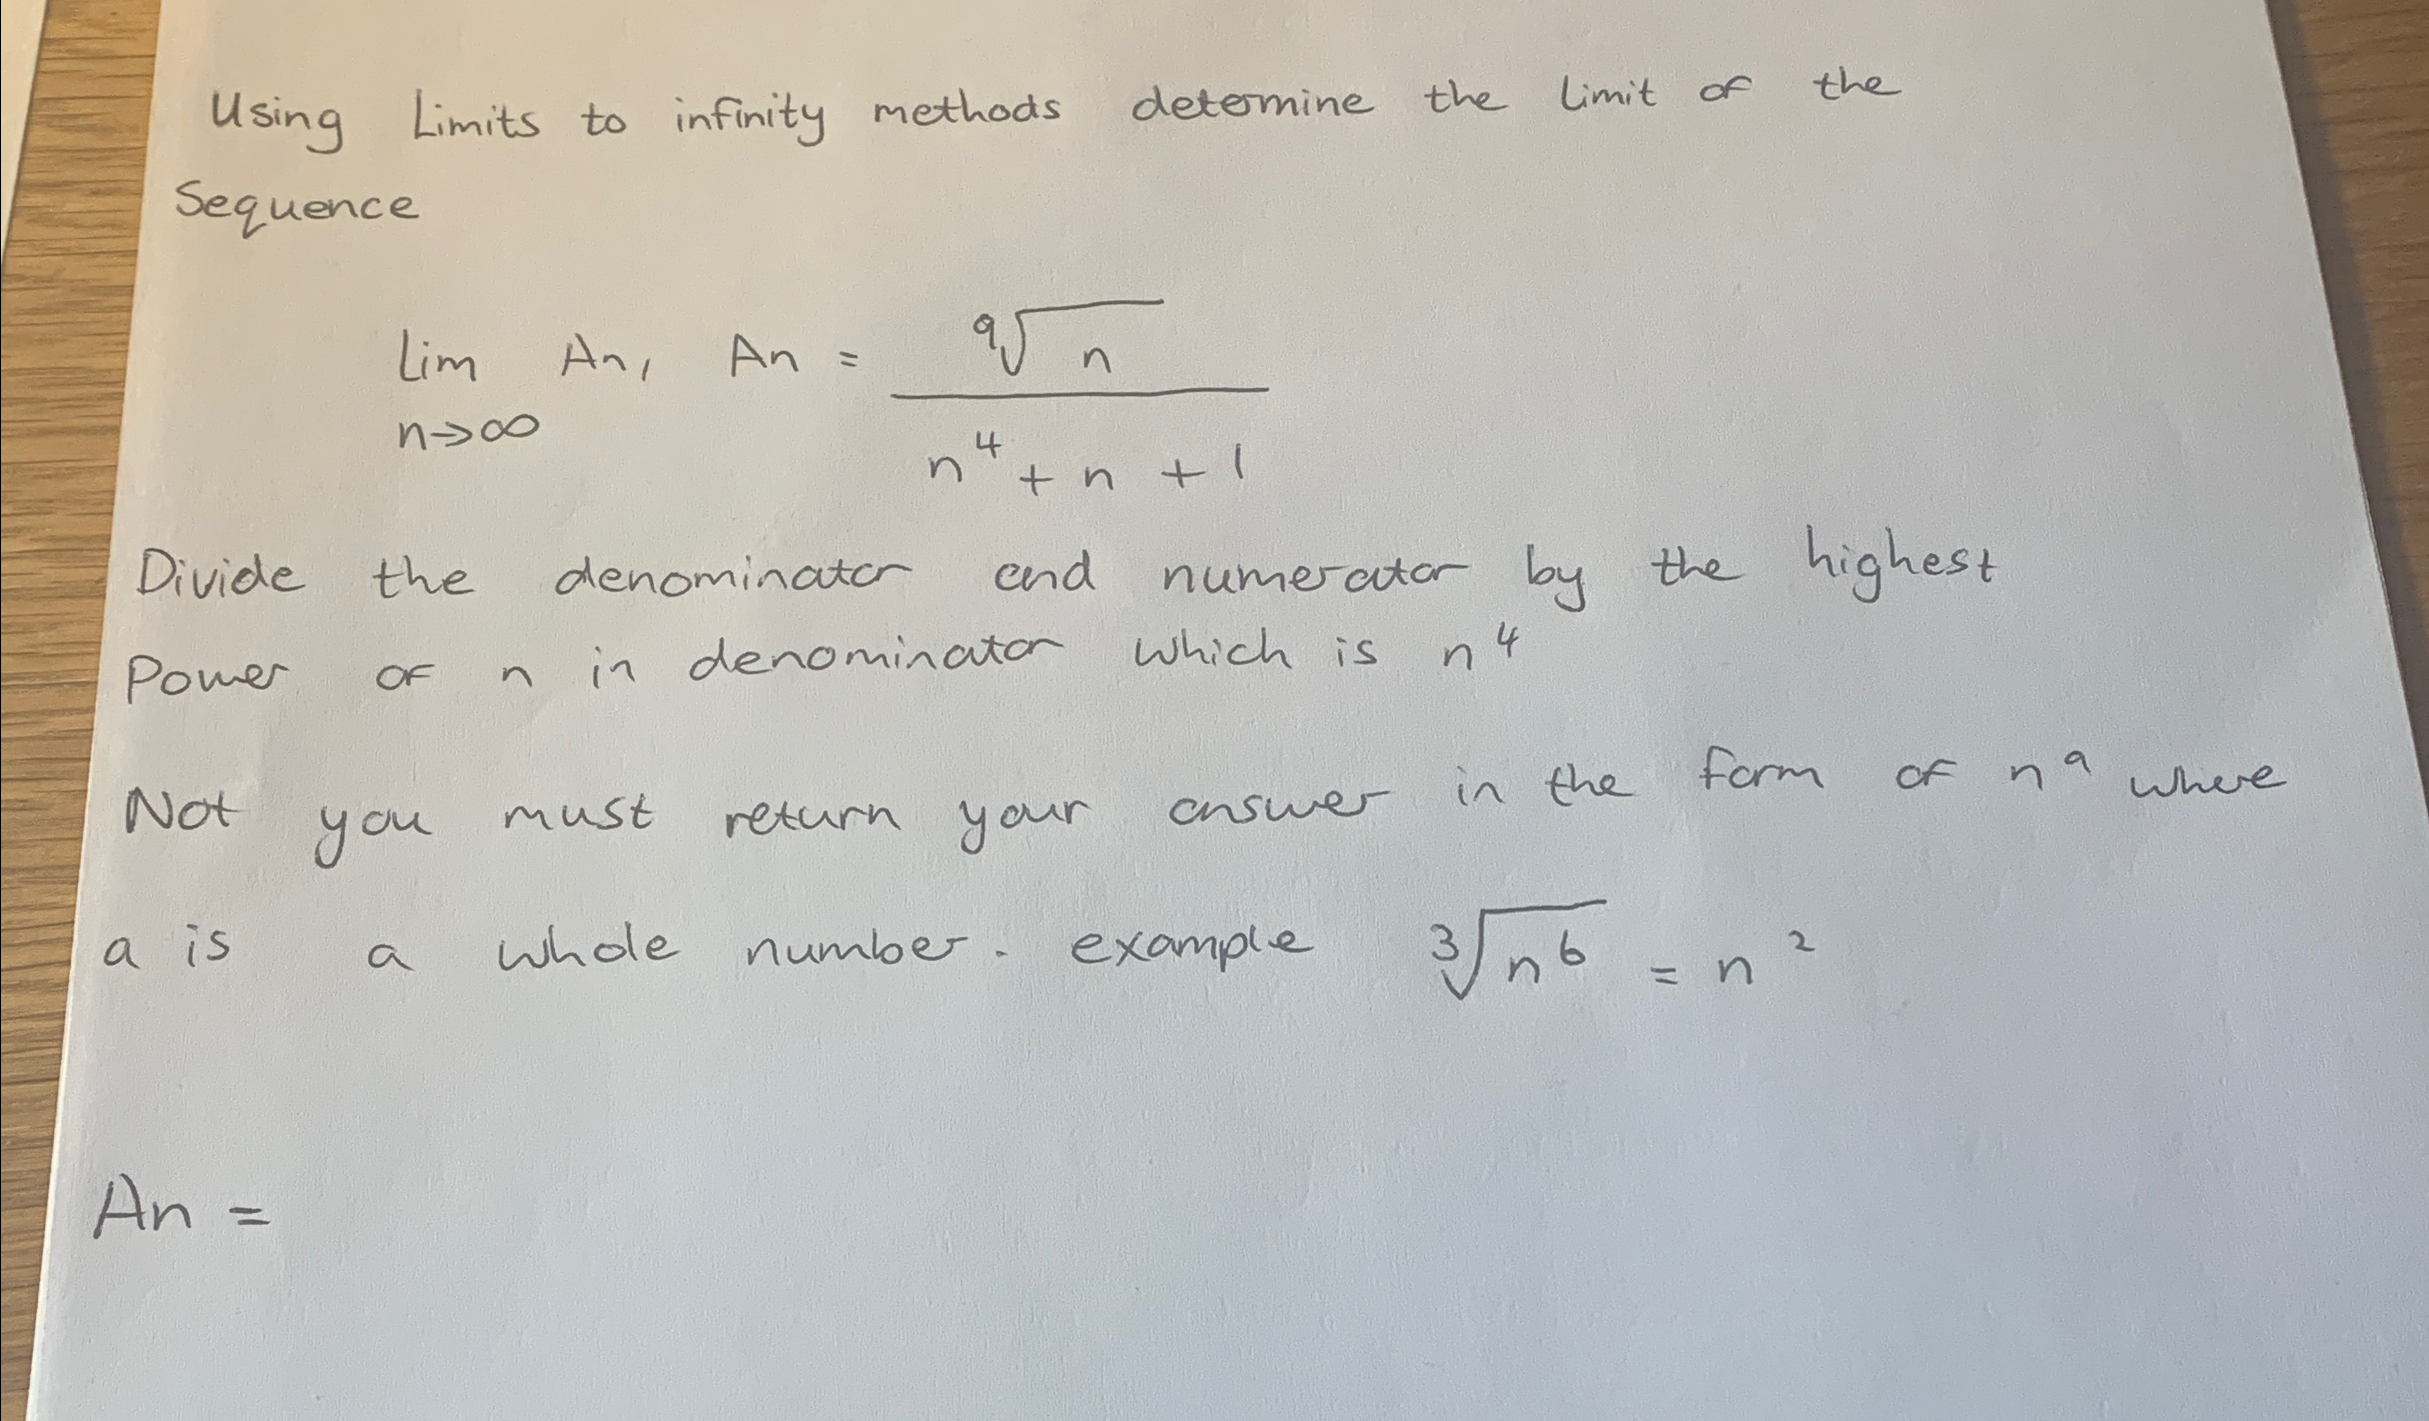 Using Limits to infinity methods determine the limit of the
Sequence
Lim An, An = ⁹√n / (n⁴ + n + 1)
n→∞
Divide the denominator and numerator by the highest
Power of n in denominator which is n⁴
Not you must return your answer in the form of nᵃ where
a is a whole number. example ³√n⁶ = n²
An =